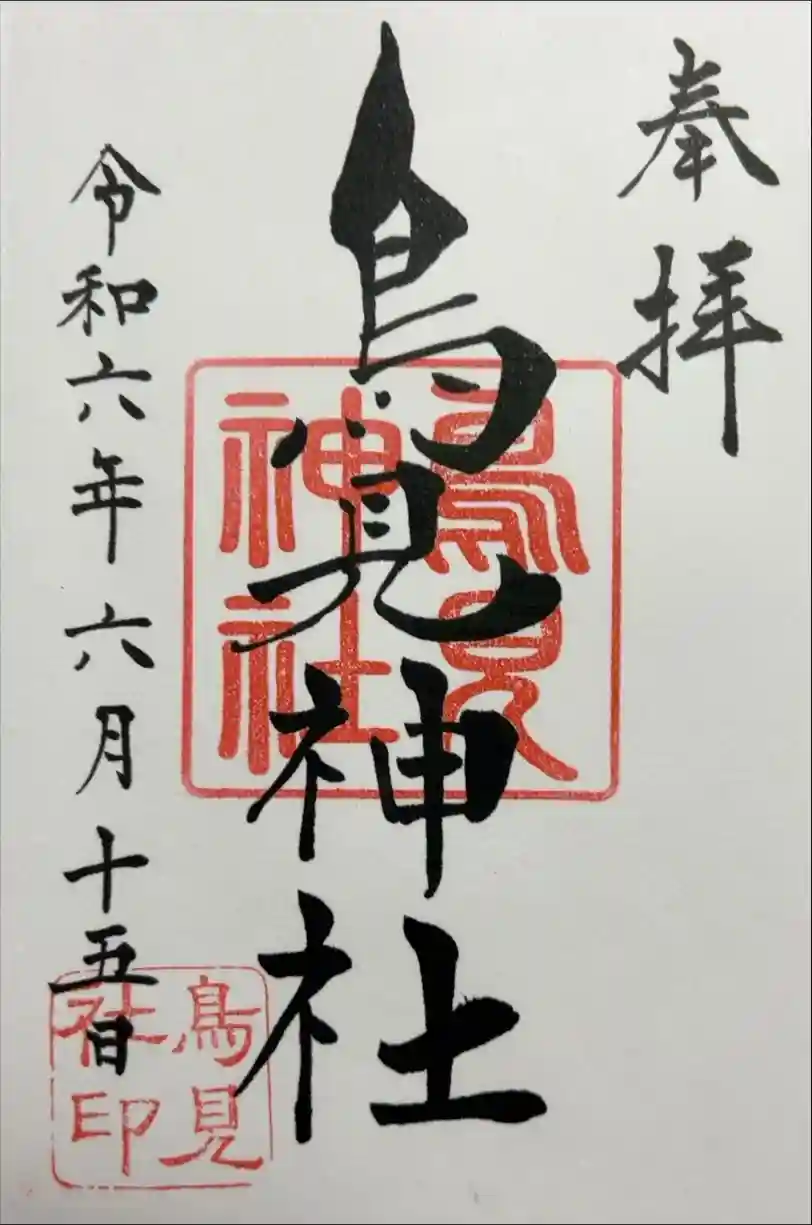 奉拝
鳥見神社
鳥見神社
令和六年六月十五日
鳥見社印